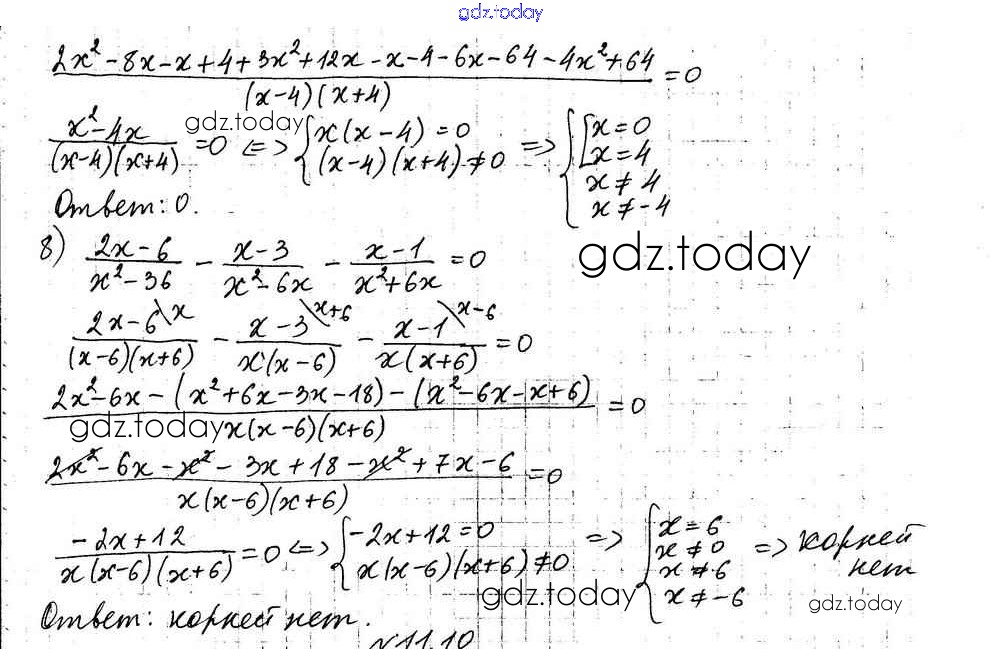 gdz.today
(2x² - 8x - x + 4 + 3x² + 12x - x - 4 - 6x - 64 - 4x² + 64) / ((x-4)(x+4)) = 0
gdz.today
(x² - 4x) / ((x-4)(x+4)) = 0 <=> { x(x-4) = 0; (x-4)(x+4) ≠ 0 => { [ x = 0; x = 4; x ≠ 4; x ≠ -4
Ответ: 0.
8) (2x-6)/(x²-36) - (x-3)/(x²-6x) - (x-1)/(x²+6x) = 0
gdz.today
(2x-6 \x)/((x-6)(x+6)) - (x-3 \x+6)/(x(x-6)) - (x-1 \x-6)/(x(x+6)) = 0
(2x² - 6x - (x² + 6x - 3x - 18) - (x² - 6x - x + 6)) / (x(x-6)(x+6)) = 0
gdz.today
(2x² - 6x - x² - 3x + 18 - x² + 7x - 6) / (x(x-6)(x+6)) = 0
(-2x + 12) / (x(x-6)(x+6)) = 0 <=> { -2x + 12 = 0; x(x-6)(x+6) ≠ 0 => { x = 6; x ≠ 0; x ≠ 6; x ≠ -6 => корней нет
gdz.today
gdz.today
Ответ: корней нет.
N11.10